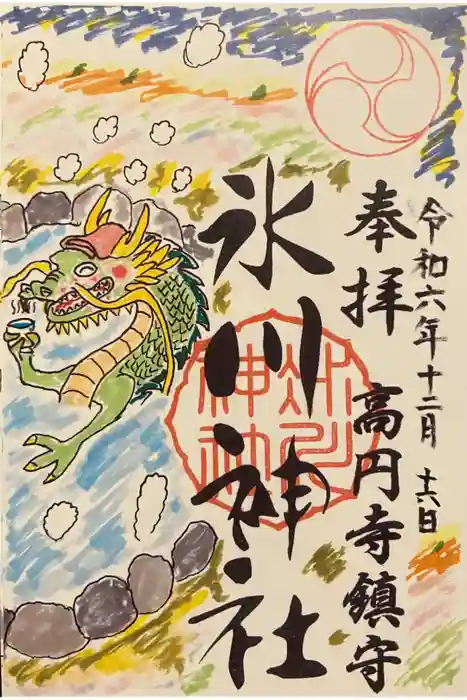 令和六年十二月 十六日
奉拝 高円寺鎮守
氷川神社